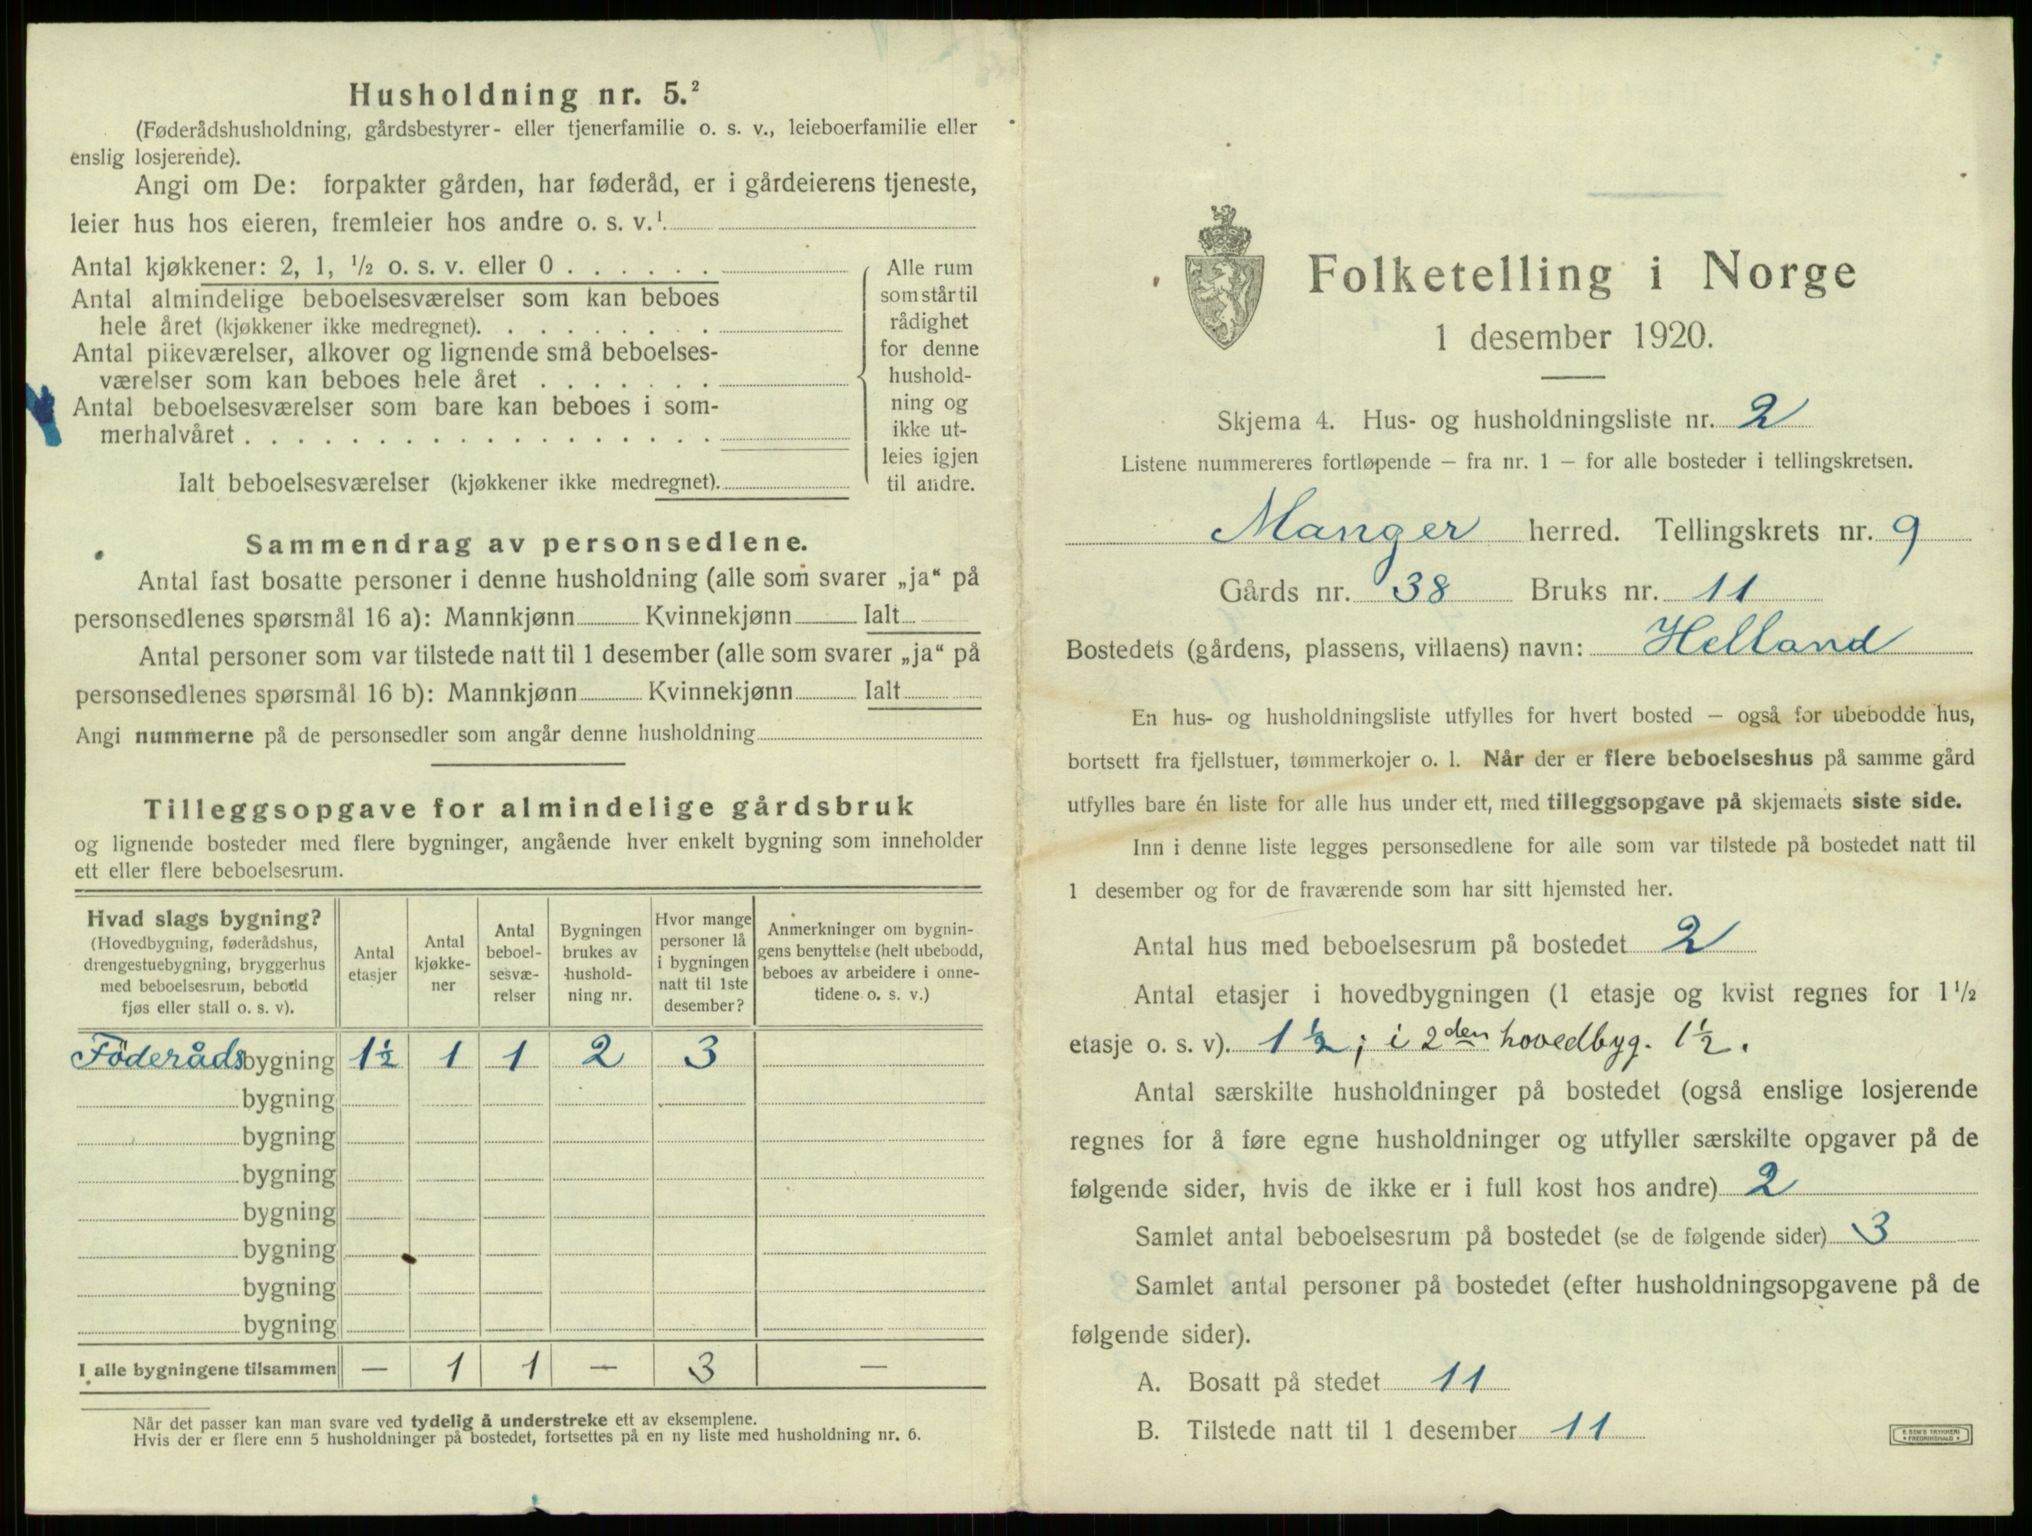 Husholdning nr. 5.²
(Føderådshusholdning, gårdsbestyrer- eller tjenerfamilie o. s. v., leieboerfamilie eller
enslig losjerende).
Angi om De: forpakter gården, har føderåd, er i gårdeierens tjeneste,
leier hus hos eieren, fremleier hos andre o. s. v.¹.
Antal kjøkkener: 2, 1, ½ o. s. v. eller 0
Antal almindelige beboelsesværelser som kan beboes
hele året (kjøkkener ikke medregnet).
Antal pikeværelser, alkover og lignende små beboelses-
værelser som kan beboes hele året
Antal beboelsesværelser som bare kan beboes i som-
merhalvåret
Ialt beboelsesværelser (kjøkkener ikke medregnet).
Alle rum
som står til
rådighet
for denne
hushold-
ning og
ikke ut-
leies igjen
til andre.
Sammendrag av personsedlene.
Antal fast bosatte personer i denne husholdning (alle som svarer „ja“ på
personsedlenes spørsmål 16 a): Mannkjønn Kvinnekjønn Ialt
Antal personer som var tilstede natt til 1 desember (alle som svarer „ja“ på
personsedlenes spørsmål 16 b): Mannkjønn Kvinnekjønn Ialt
Angi nummerne på de personsedler som angår denne husholdning
Tilleggsopgave for almindelige gårdsbruk
og lignende bosteder med flere bygninger, angående hver enkelt bygning som inneholder
ett eller flere beboelsesrum.
Hvad slags bygning?
(Hovedbygning, føderådshus,
drengestuebygning, bryggerhus
med beboelsesrum, bebodd
fjøs eller stall o. s. v).
Antal
etasjer
Antal
kjøkke-
ner
Antal
beboel-
sesvæ-
relser
Bygningen
brukes av
hushold-
ning nr.
Hvor mange
personer lå
i bygningen
natt til 1ste
desember?
Anmerkninger om bygnin-
gens benyttelse (helt ubebodd,
beboes av arbeidere i onne-
tidene o. s. v.)
Föderådsbygning 1½ 1 1 2 3
bygning
bygning
bygning
bygning
bygning
bygning
bygning
I alle bygningene tilsammen — 1 1 — 3 —
Når det passer kan man svare ved tydelig å understreke ett av eksemplene.
Hvis der er flere enn 5 husholdninger på bostedet, fortsettes på en ny liste med husholdning nr. 6.
Folketelling i Norge
1 desember 1920.
Skjema 4. Hus- og husholdningsliste nr. 2
Listene nummereres fortløpende — fra nr. 1 — for alle bosteder i tellingskretsen.
Manger herred. Tellingskrets nr. 9
Gårds nr. 38 Bruks nr. 11
Bostedets (gårdens, plassens, villaens) navn: Helland
En hus- og husholdningsliste utfylles for hvert bosted — også for ubebodde hus,
bortsett fra fjellstuer, tømmerkojer o. l. Når der er flere beboelseshus på samme gård
utfylles bare én liste for alle hus under ett, med tilleggsopgave på skjemaets siste side.
Inn i denne liste legges personsedlene for alle som var tilstede på bostedet natt til
1 desember og for de fraværende som har sitt hjemsted her.
Antal hus med beboelsesrum på bostedet 2
Antal etasjer i hovedbygningen (1 etasje og kvist regnes for 1½
etasje o. s. v). 1½; i 2den hovedbyg. 1½.
Antal særskilte husholdninger på bostedet (også enslige losjerende
regnes for å føre egne husholdninger og utfyller særskilte opgaver på de
følgende sider, hvis de ikke er i full kost hos andre) 2
Samlet antal beboelsesrum på bostedet (se de følgende sider) 3
Samlet antal personer på bostedet (efter husholdningsopgavene på de
følgende sider).
A. Bosatt på stedet 11
B. Tilstede natt til 1 desember 11